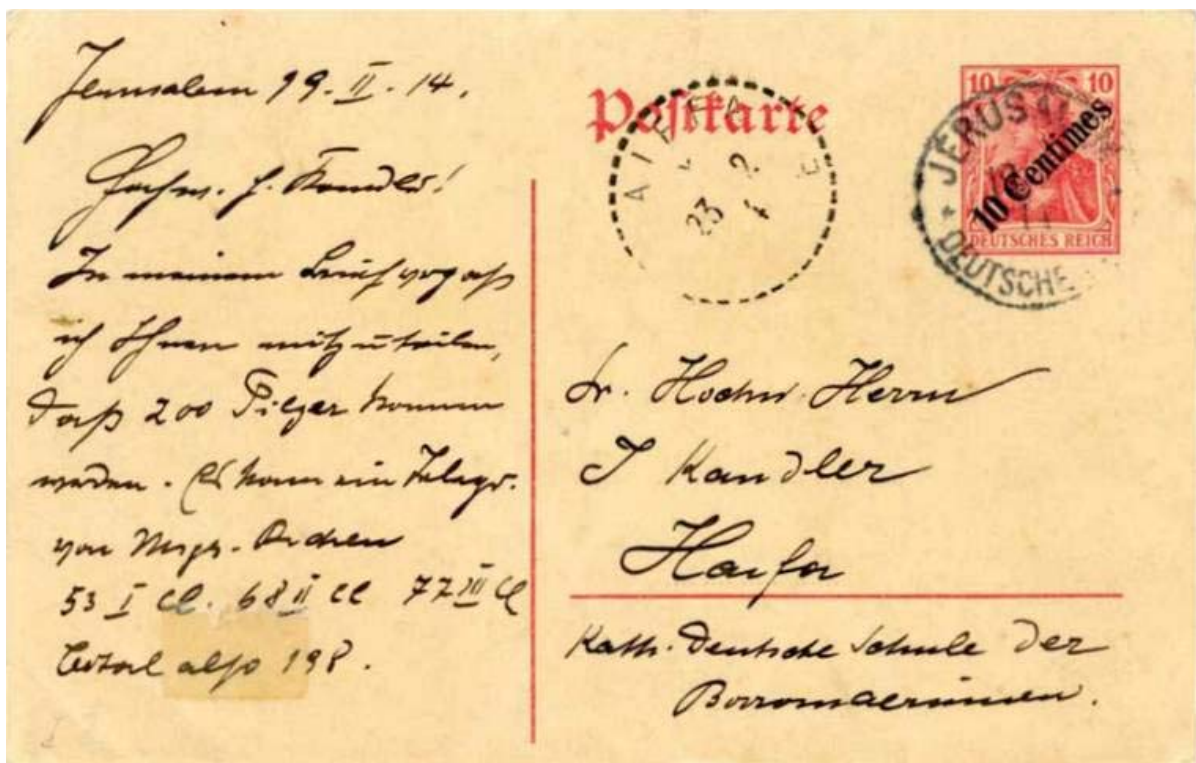 Jerusalem 19. II. 14.
Hochw. H. Kandler!
In meinem Brief vergaß
ich Ihnen mitzuteilen,
daß 200 Pilger kommen
werden. Es kam ein Telegr.
von Msgr.
53 I Cl. 68 II Cl 77 III Cl
Total also 198.
Postkarte
AIFFA
23 2
10 10
10 Centimes
DEUTSCHES REICH
JERUSALEM
DEUTSCHE
Sr. Hochw. Herrn
J Kandler
Haifa
Kath. Deutsche Schule der
Borromaerinnen.